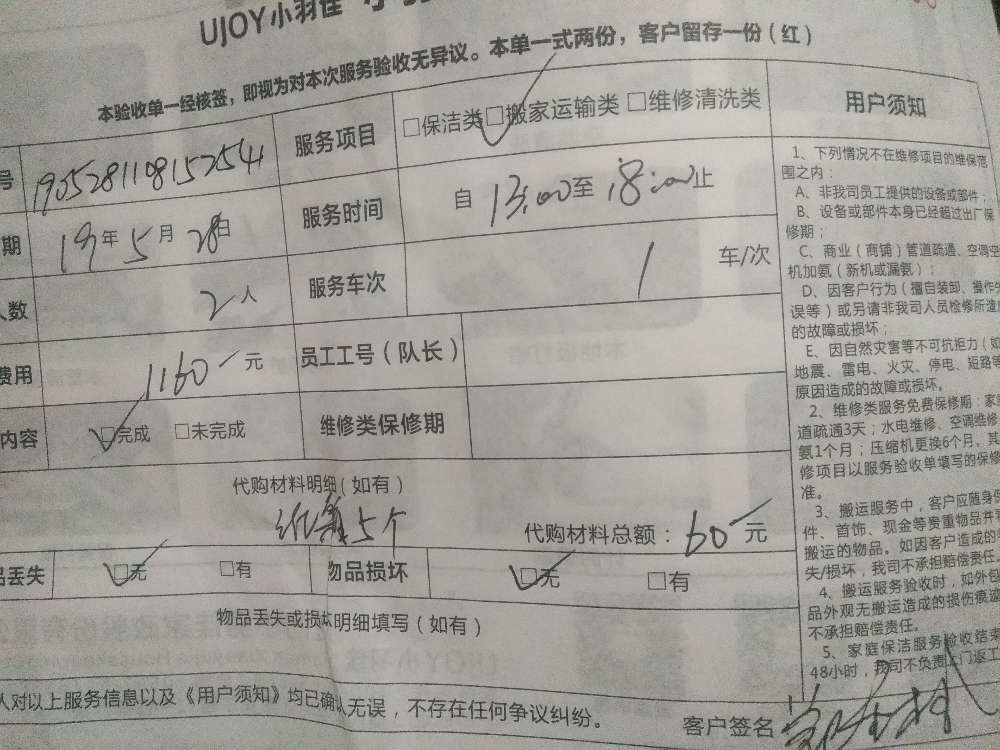 UJOY小羽佳
本验收单一经核签，即视为对本次服务验收无异议。本单一式两份，客户留存一份（红）
号 190528110815254 服务项目 □保洁类 □搬家运输类 □维修清洗类
期 19年5月28日 服务时间 自 13:00 至 18:00 止
人数 2人 服务车次 1 车/次
费用 1160元 员工工号（队长）
内容 □完成 □未完成 维修类保修期
代购材料明细（如有）
纸箱5个 代购材料总额：60元
品丢失 □无 □有 物品损坏 □无 □有
物品丢失或损坏明细填写（如有）
人对以上服务信息以及《用户须知》均已确认无误，不存在任何争议纠纷。
客户签名
用户须知
1、下列情况不在维修项目的维保范
围之内：
A、非我司员工提供的设备或部件；
B、设备或部件本身已经超过出厂保
修期；
C、商业（商铺）管道疏通、空调空
机加氨（新机或漏氨）；
D、因客户行为（擅自装卸、操作失
误等）或另请非我司人员检修所造
的故障或损坏；
E、因自然灾害等不可抗拒力（如
地震、雷电、火灾、停电、短路等
原因造成的故障或损坏。
2、维修类服务免费保修期：家
道疏通3天；水电维修、空调维修
氨1个月；压缩机更换6个月，其
修项目以服务验收单填写的保修
准。
3、搬运服务中，客户应随身保
件、首饰、现金等贵重物品并
搬运的物品。如因客户造成的
失/损坏，我司不承担赔偿责任
4、搬运服务验收时，如外包
品外观无搬运造成的损伤痕迹
不承担赔偿责任。
5、家庭保洁服务验收结束
48小时，我司不负责上门返工